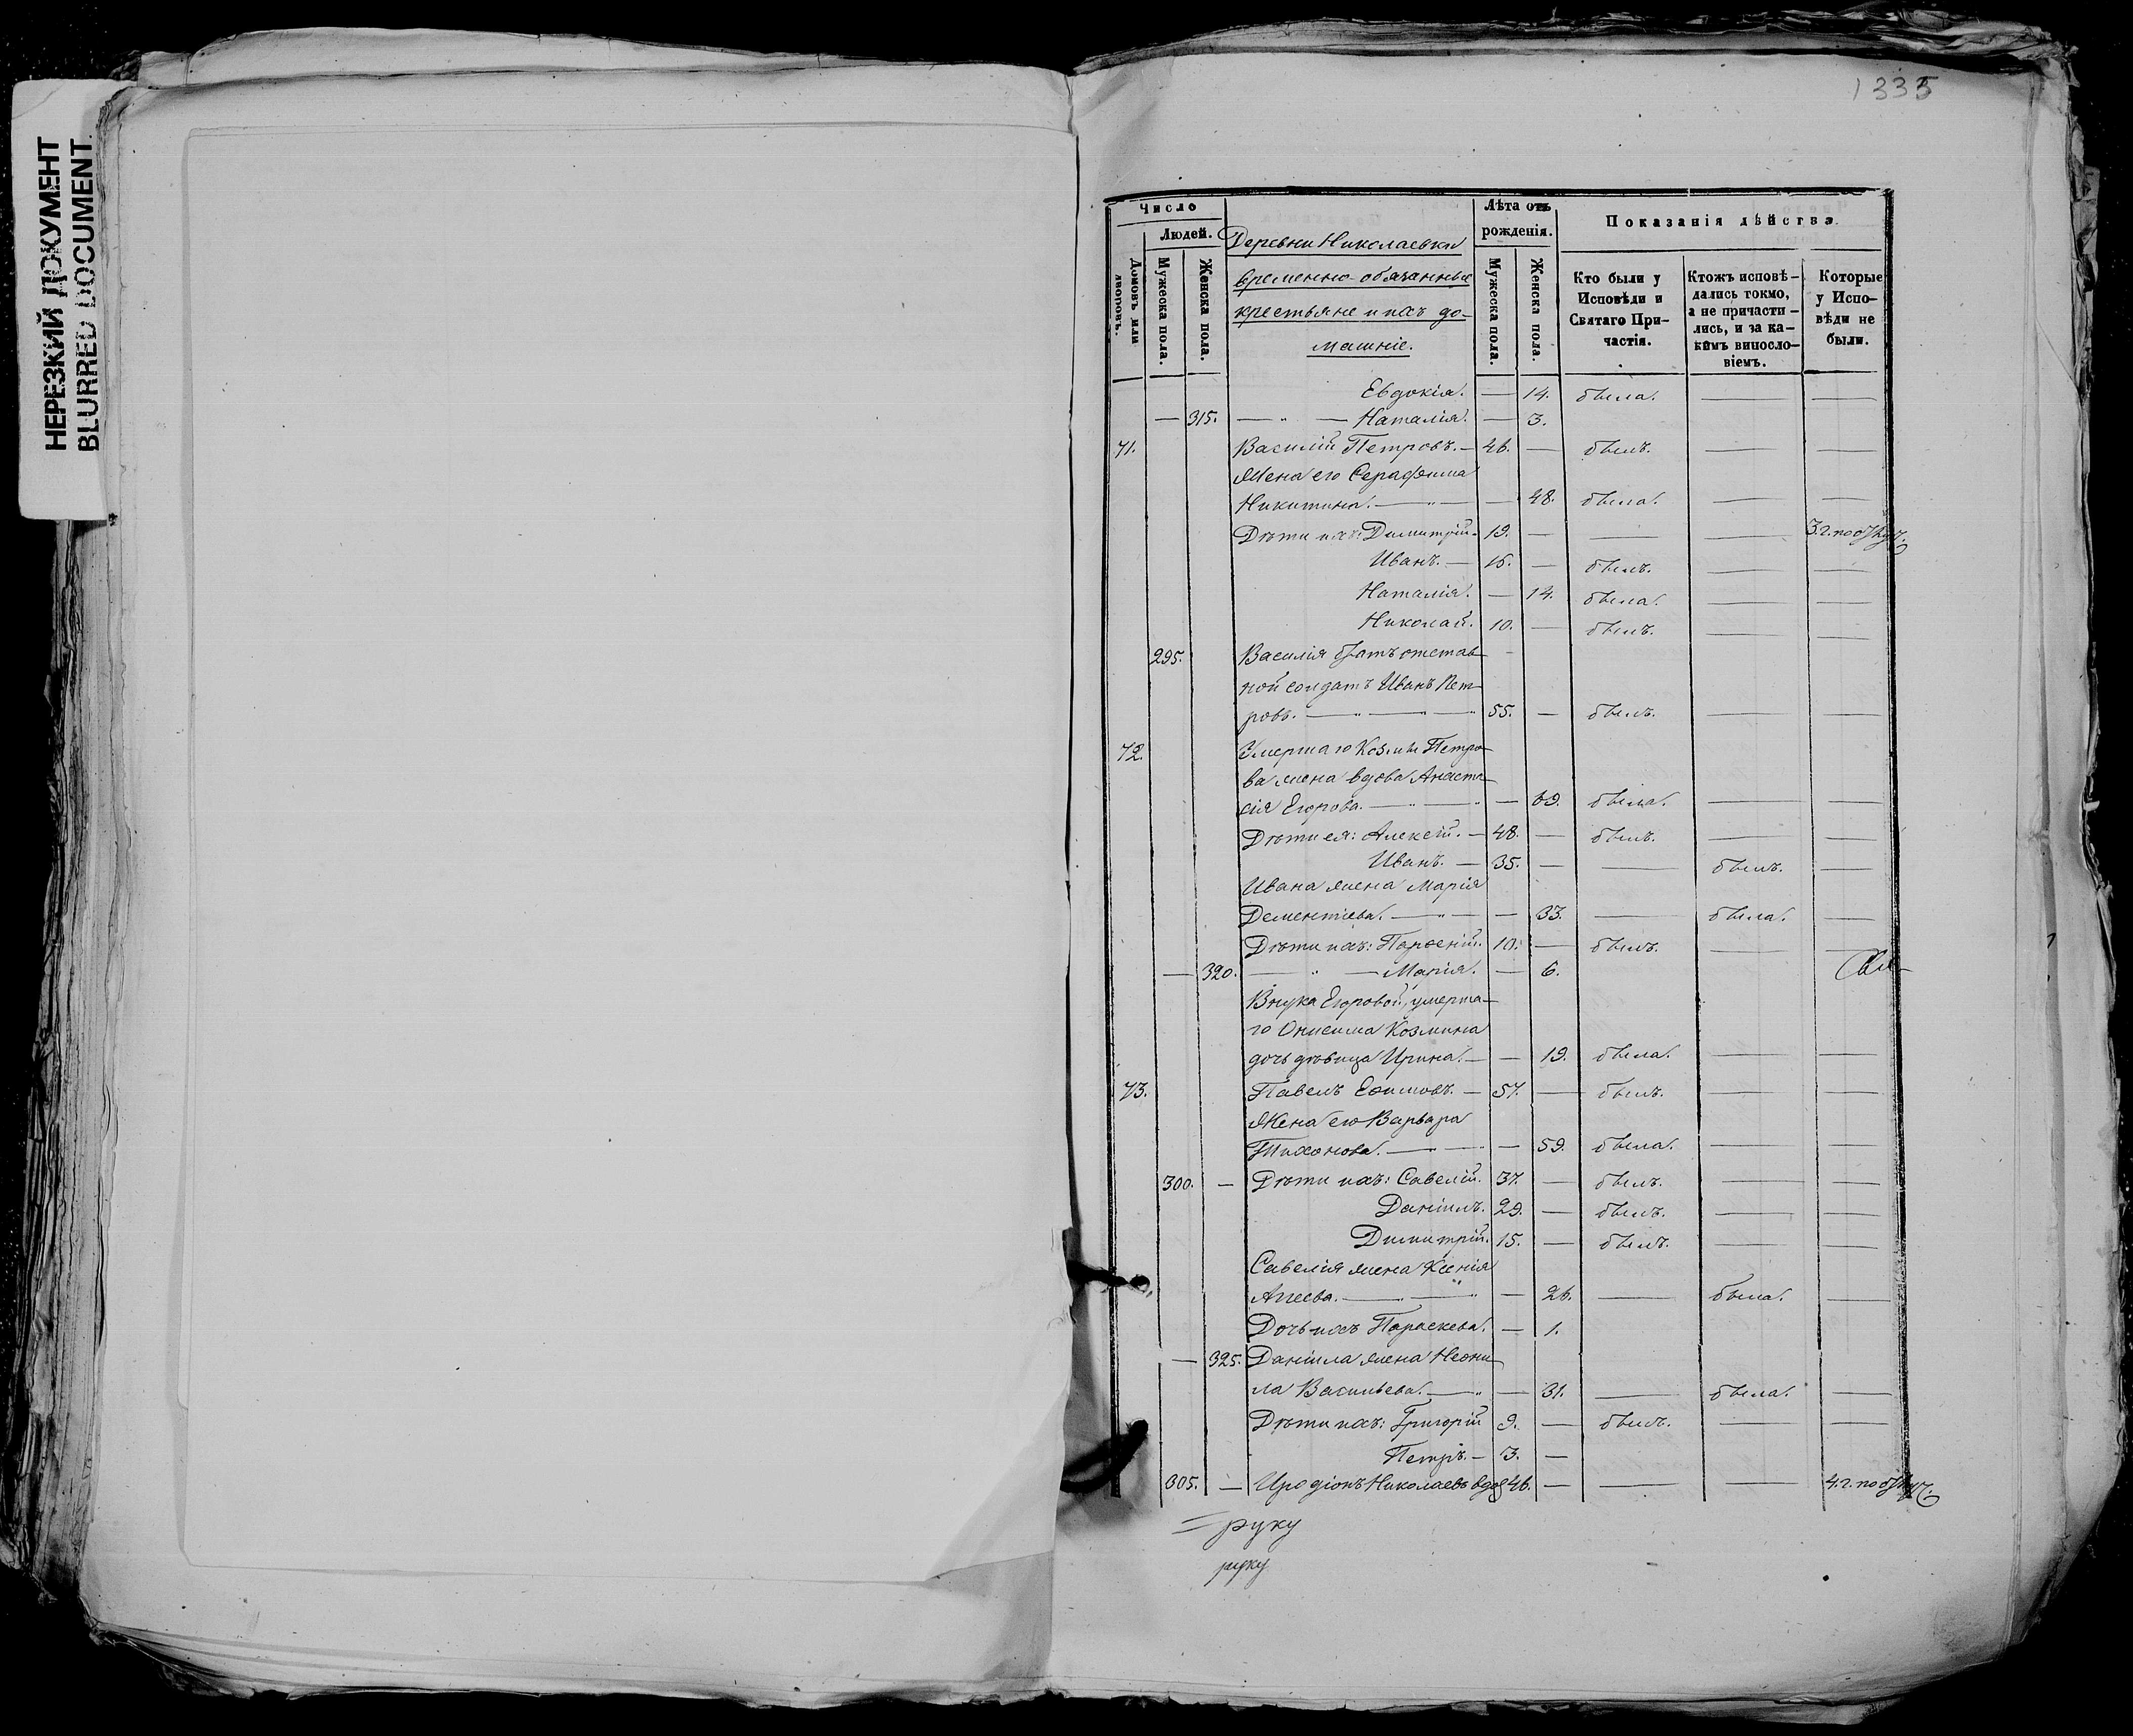 НЕРЕЗКИЙ ДОКУМЕНТ
BLURRED DOCUMENT
1335
Число
Людей.
Домовъ или дворовъ.
Мужеска пола.
Женска пола.
Деревни Николаевки
временно-обязанные
крестьяне и ихъ до-
машніе.
Лѣта отъ
рожденія.
Мужеска пола.
Женска пола.
Показанія дѣйства.
Кто были у
Исповѣди и
Святаго При-
частія.
Ктожъ исповѣ-
дались токмо,
а не причасти-
лись, и за ка-
кимъ виносло-
віемъ.
Которые
у Испо-
вѣди не
были.
Евдокія. — 14. была. — —
— 315. — „ — Наталія. — 3.
71. Василій Петровъ. — 46. — былъ. — —
Жена его Серафима
Никитина. — „ — — 48. была. — —
Дѣти ихъ: Димитрій. 19. — — — 3. г. по отлуч.
Иванъ. — 16. — былъ. — —
Наталія. — 14. была. — —
Николай. 10. — былъ. — —
295. Василія братъ отстав-
ной солдатъ Иванъ Пет-
ровъ. — „ — „ — „ 55. — былъ. — —
72. Умершаго Козмы Петро-
ва жена вдова Анаста-
сія Егорова. — „ — „ — 69. была. — —
Дѣти ея: Алексій. — 48. — былъ. — —
Иванъ. — 35. — — былъ. —
Ивана жена Марія
Дементіева. — „ — — 33. — была. —
Дѣти ихъ: Парѳеній. 10. — былъ. — —
— 320. — „ — Марія. — 6.
Внука Егоровой, умерша-
го Онисима Козмина
дочь дѣвица Ирина. — — 19. была. — —
73. Павелъ Ефимовъ. — 57. — былъ. — —
Жена его Варвара
Тихонова. — „ — — 59. была. — —
300. — Дѣти ихъ: Савелій. 37. — былъ. — —
Даніилъ. 29. — былъ. — —
Димитрій. 15. — былъ. — —
Савелія жена Ксенія
Агеева. — „ — „ — 26. — была. —
Дочь ихъ Параскева. — 1.
— 325. Даніила жена Неони-
ла Васильева. — „ — 31. — была. —
Дѣти ихъ: Григорій 9. — былъ. — —
Петръ. — 3. —
305. — Иродіонъ Николаевъ вдов. 46. — — — 4. г. по отлуч.
= руку
руку